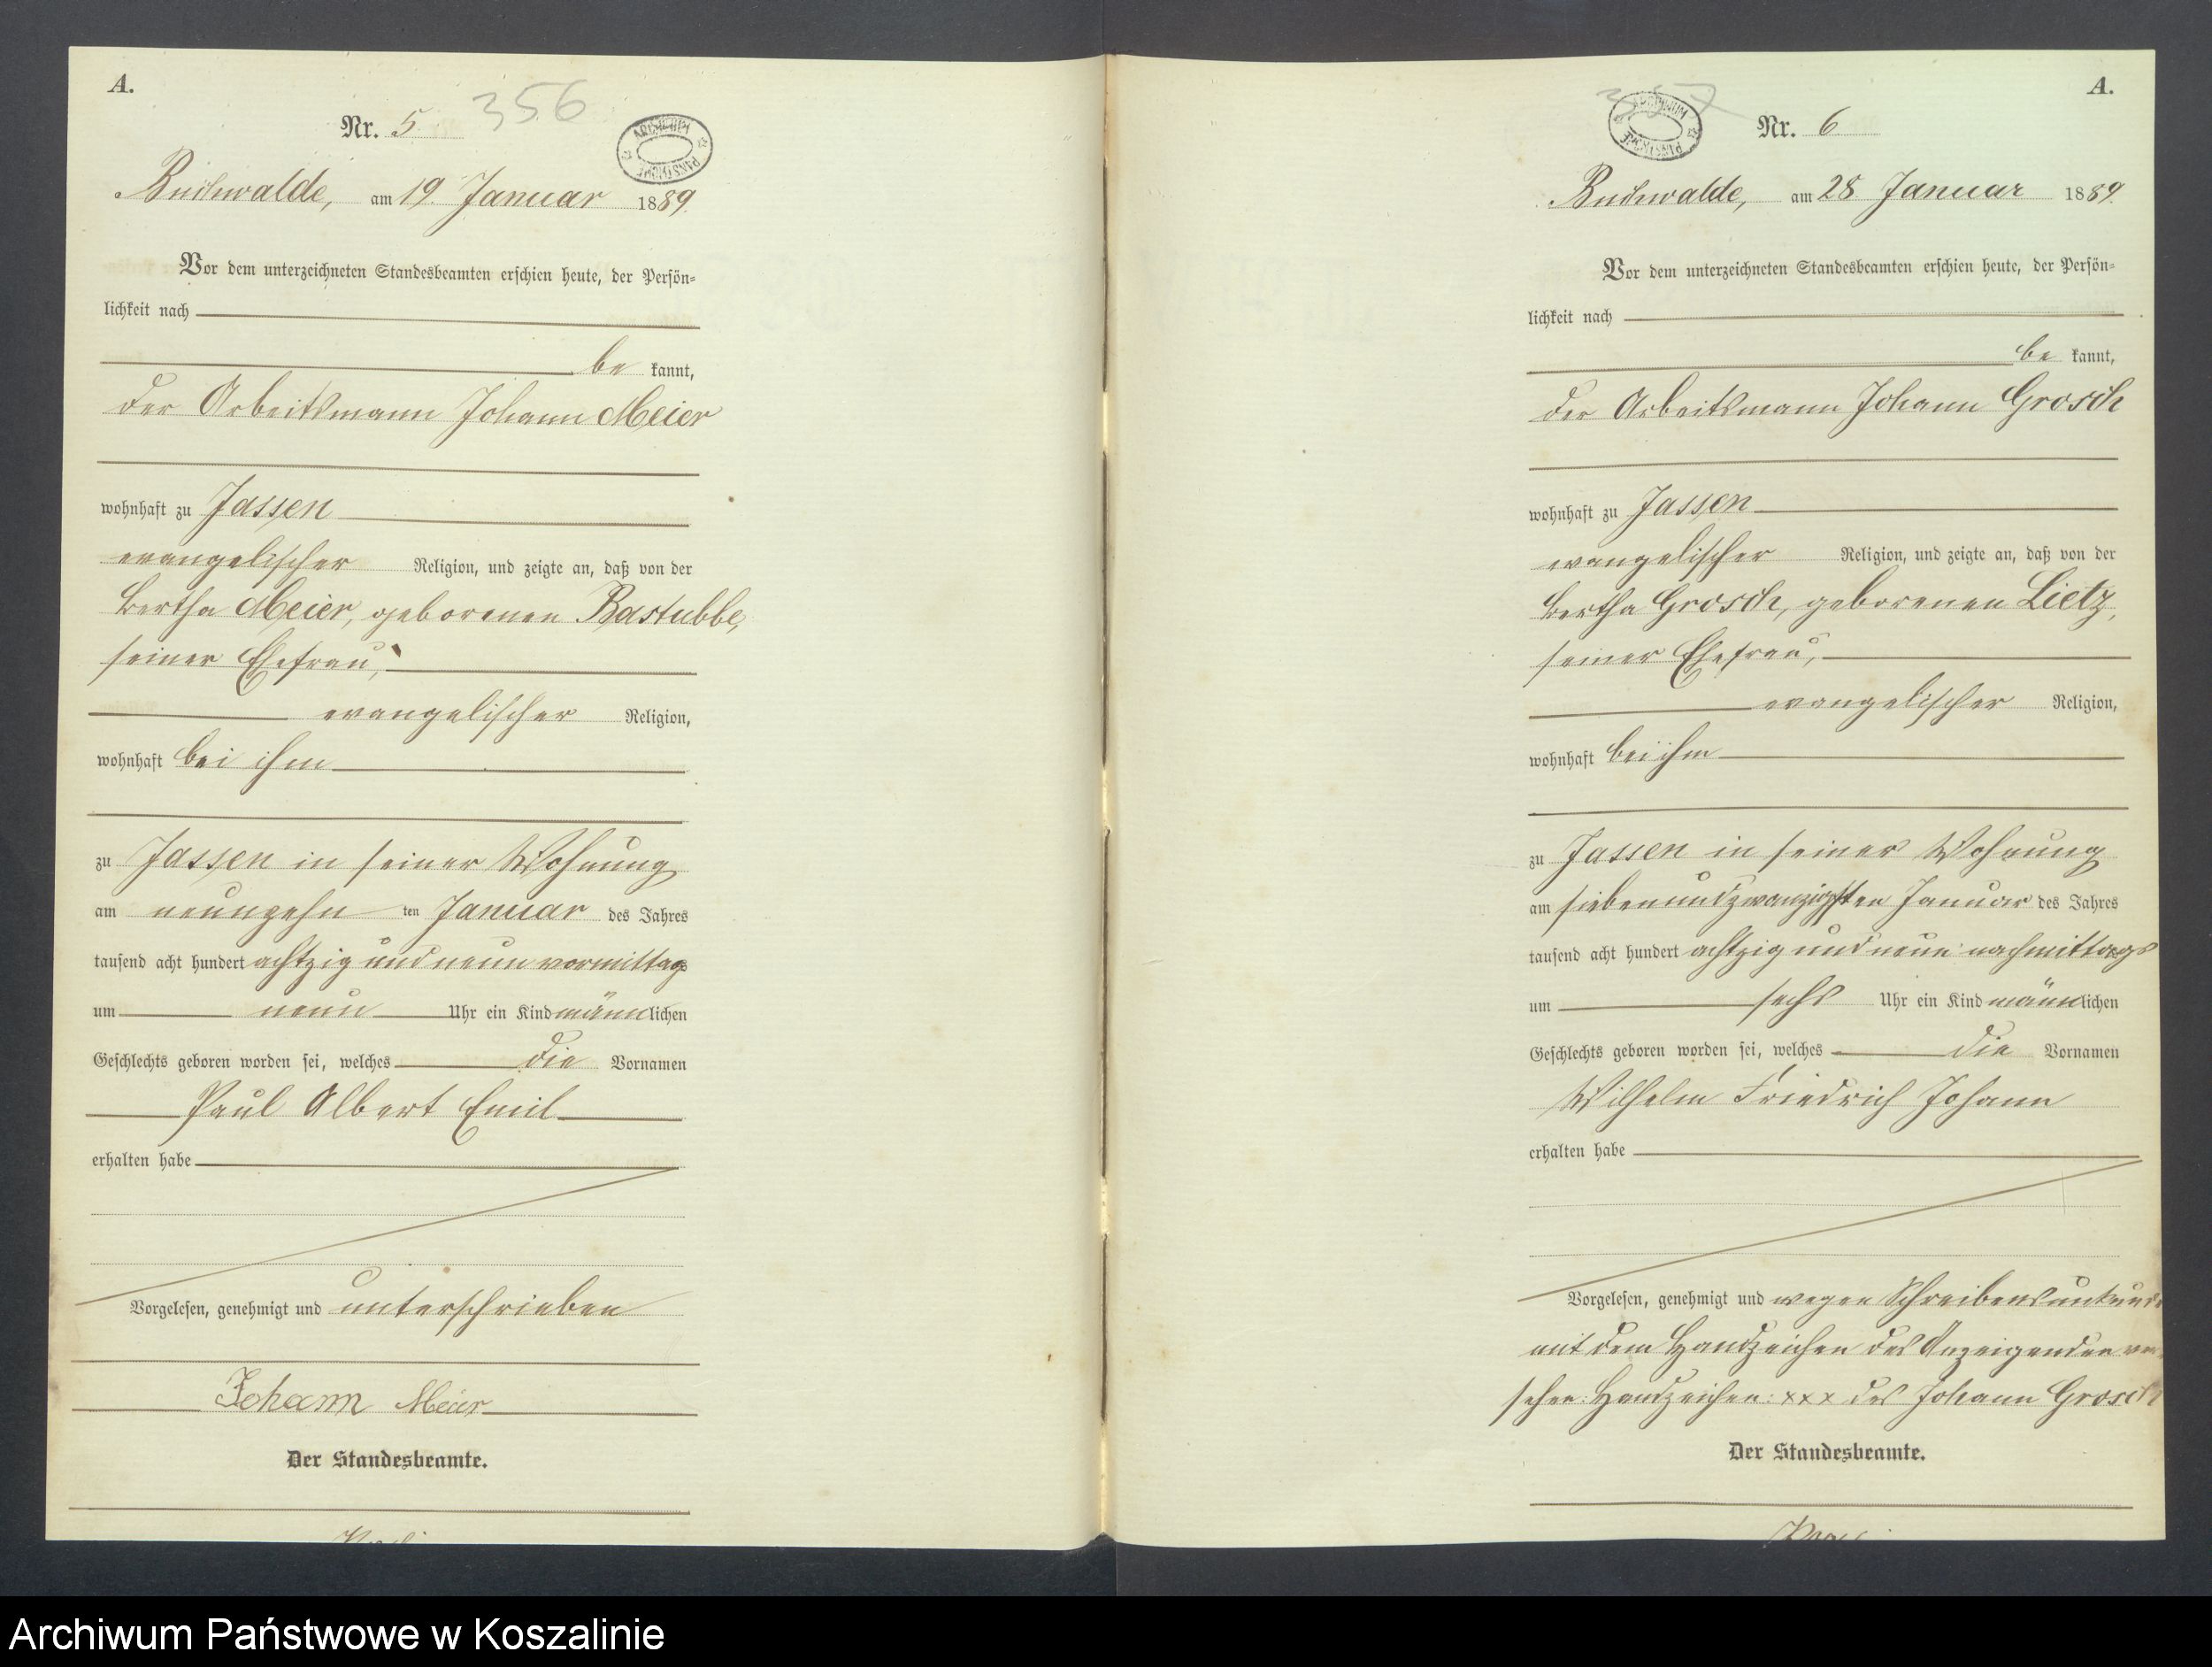 A.
Nr. 5
356
Buchwalde, am 19. Januar 1889.
Vor dem unterzeichneten Standesbeamten erschien heute, der Persön-
lichkeit nach
be kannt,
der Arbeitsmann Johann Meier
wohnhaft zu Jassen
evangelischer Religion, und zeigte an, daß von der
Bertha Meier, geborenen Rastubbe,
seiner Ehefrau,
evangelischer Religion,
wohnhaft bei ihm
zu Jassen in seiner Wohnung
am neunzehn ten Januar des Jahres
tausend acht hundert achtzig und neun vormittags
um neun Uhr ein Kind männlichen
Geschlechts geboren worden sei, welches die Vornamen
Paul Albert Emil
erhalten habe
Vorgelesen, genehmigt und unterschrieben
Johann Meier
Der Standesbeamte.
A.
357
ARCHIWUM PAŃSTWOWE
Nr. 6
Buchwalde, am 28 Januar 1889.
Vor dem unterzeichneten Standesbeamten erschien heute, der Persön-
lichkeit nach
be kannt,
der Arbeitsmann Johann Grosch
wohnhaft zu Jassen
evangelischer Religion, und zeigte an, daß von der
Bertha Grosch, geborenen Lietz,
seiner Ehefrau,
evangelischer Religion,
wohnhaft bei ihm
zu Jassen in seiner Wohnung
am siebenundzwanzigsten Januar des Jahres
tausend acht hundert achtzig und neun nachmittags
um sechs Uhr ein Kind männlichen
Geschlechts geboren worden sei, welches die Vornamen
Wilhelm Friedrich Johann
erhalten habe
Vorgelesen, genehmigt und wegen Schreibensunkunde
mit dem Handzeichen des Anzeigenden ver
sehen: Handzeichen: xxx des Johann Grosch
Der Standesbeamte.
Archiwum Państwowe w Koszalinie